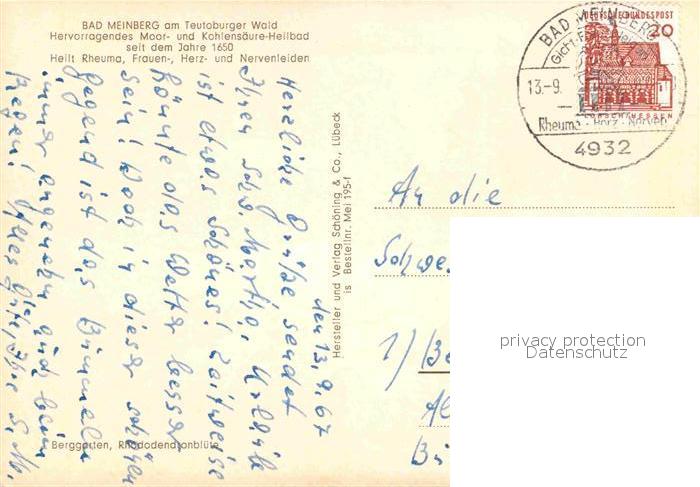 BAD MEINBERG am Teutoburger Wald
Hervorragendes Moor- und Kohlensäure-Heilbad
seit dem Jahre 1650
Heilt Rheuma, Frauen-, Herz- und Nervenleiden
den 13.9.67
Herzliche Grüße sendet
Ihnen Schw. Martha, Urlaub
ist etwas Schönes! Zeitweise
könnte das Wetter besser
sein! Doch in dieser schönen
Gegend ist das Bummeln
immer angenehm auch beim
Regen! Alles Gute, Ihre S. M.
Berggarten, Rhododendronblüte
Hersteller und Verlag Schöning & Co., Lübeck
is Bestellnr. Mei 195-f
DEUTSCHE BUNDESPOST
20
LORSCH/HESSEN
BAD MEINBERG
13.-9.
Rheuma · Herz · Nerven
4932
An die
Schwe
1)
privacy protection
Datenschutz